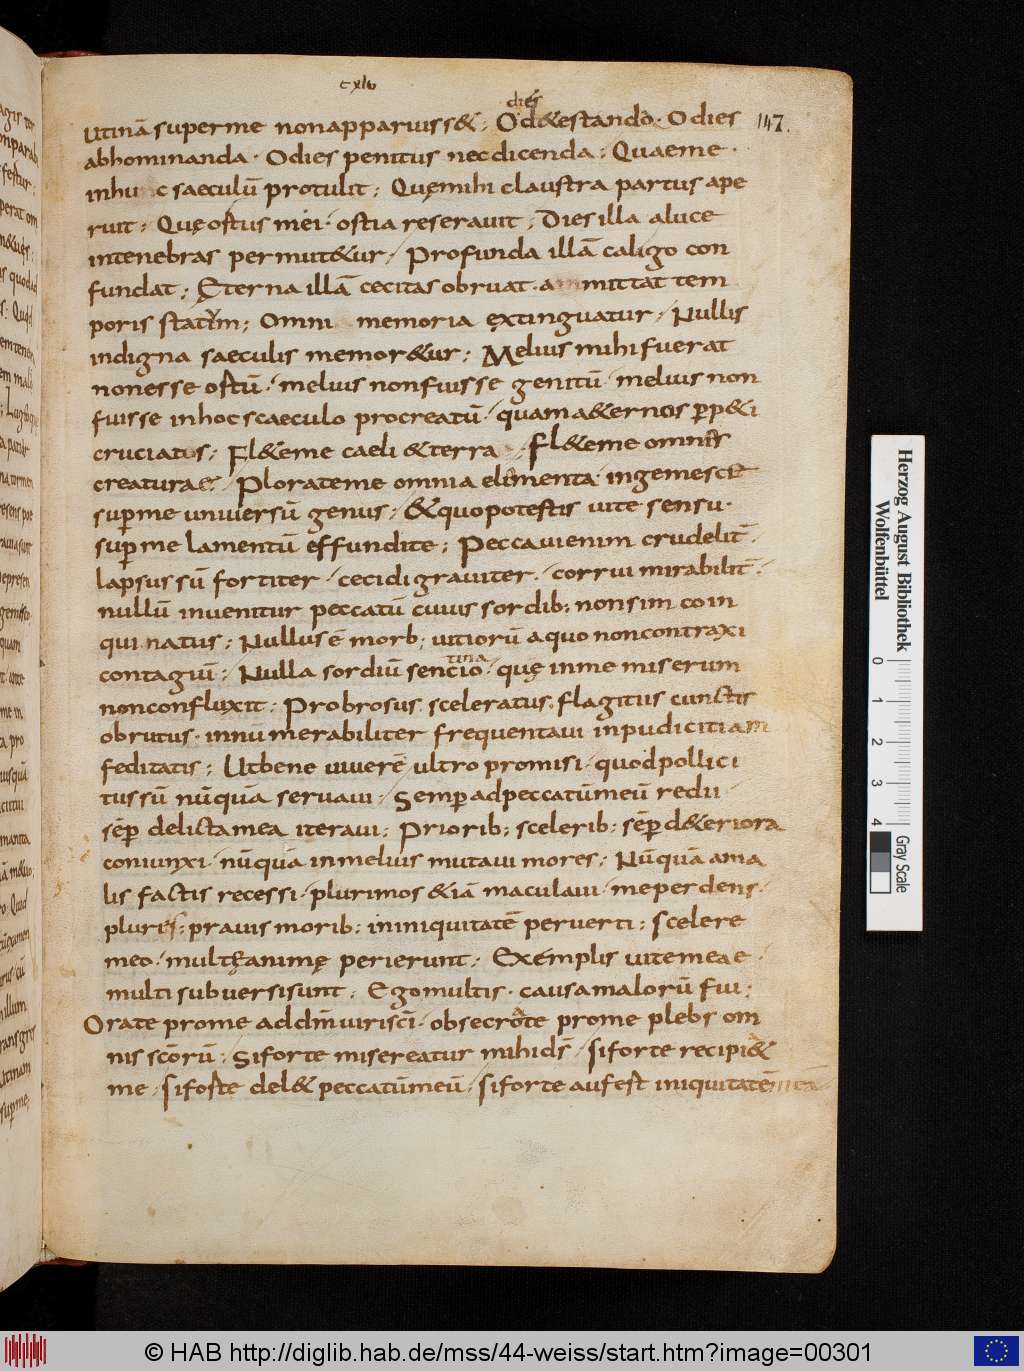 cxlv
dies
utinā super me non apparuiss&; O d&estando · O dies 147.
abhominanda · O dies penitus nec dicenda; Quae me ·
in hunc saeculū protulit; Quę mihi claustra partus ape
ruit; Quę ostus mei · ostia reserauit; Dies illa a luce
in tenebras permut&ur; Profunda illā caligo con
fundat; Ęterna illā cecitas obruat · amittat tem
poris statum; Omni memoria extinguatur; Nullis
indigna saeculis memor&ur; Melius mihi fuerat
non esse ostū; melius non fuisse genitū; melius non
fuisse in hoc scaeculo procreatū; quam a&ernos p̄p&i
cruciatos; Fl&e me caeli & terra; Fl&e me omnis
creaturae; Plorate me omnia elimenta ingemescit
sup me uniuersū genus; & quo potestis uite sensu ·
sup me lamentū effundite; Peccaui enim crudelit̄ ·
lapsus sū fortiter · cecidi grauiter · corrui mirabilit̄ ·
nullū inuenitur peccatū cuius sordib; non sim coin
quinatus; Nullus ē morb; uitiorū a quo non contraxi
tina
contaguī; Nulla sordiū sencio · quę in me miserum
non confluxit; Probrosus sceleratus flagitiis cunctis
obrutus · innūmerabiliter frequentaui inpudicitiam
feditatis; Ut bene uiuerē ultro promisi · quod pollici
tus sū nūquā seruaui; Semp ad peccatū meū redii
sēp delicta mea iteraui; Priorib; scelerib; sēp d&eriora
coniunxi · nūquā in melius mutaui mores; Nūquā a ma
lis factis recessi · plurimos &iā maculaui · me perdens ·
pluris; prauis morib; in iniquitatē peruerti; scelere
meo · multę animę perierunt; Exemplis uite meae ·
multi subuersi sunt; Ego multis · causa malorū fui;
Orate pro me ad dm̄ uiri sc̄i · obsecrate pro me plebs om
nis sc̄orū; Si forte misereatur mihi ds̄ · si forte recipi&
me · si foste del& peccatū meū · si forte aufest iniquitatē meā
Herzog August Bibliothek
Wolfenbüttel
0 1 2 3 4
Gray Scale
© HAB http://diglib.hab.de/mss/44-weiss/start.htm?image=00301